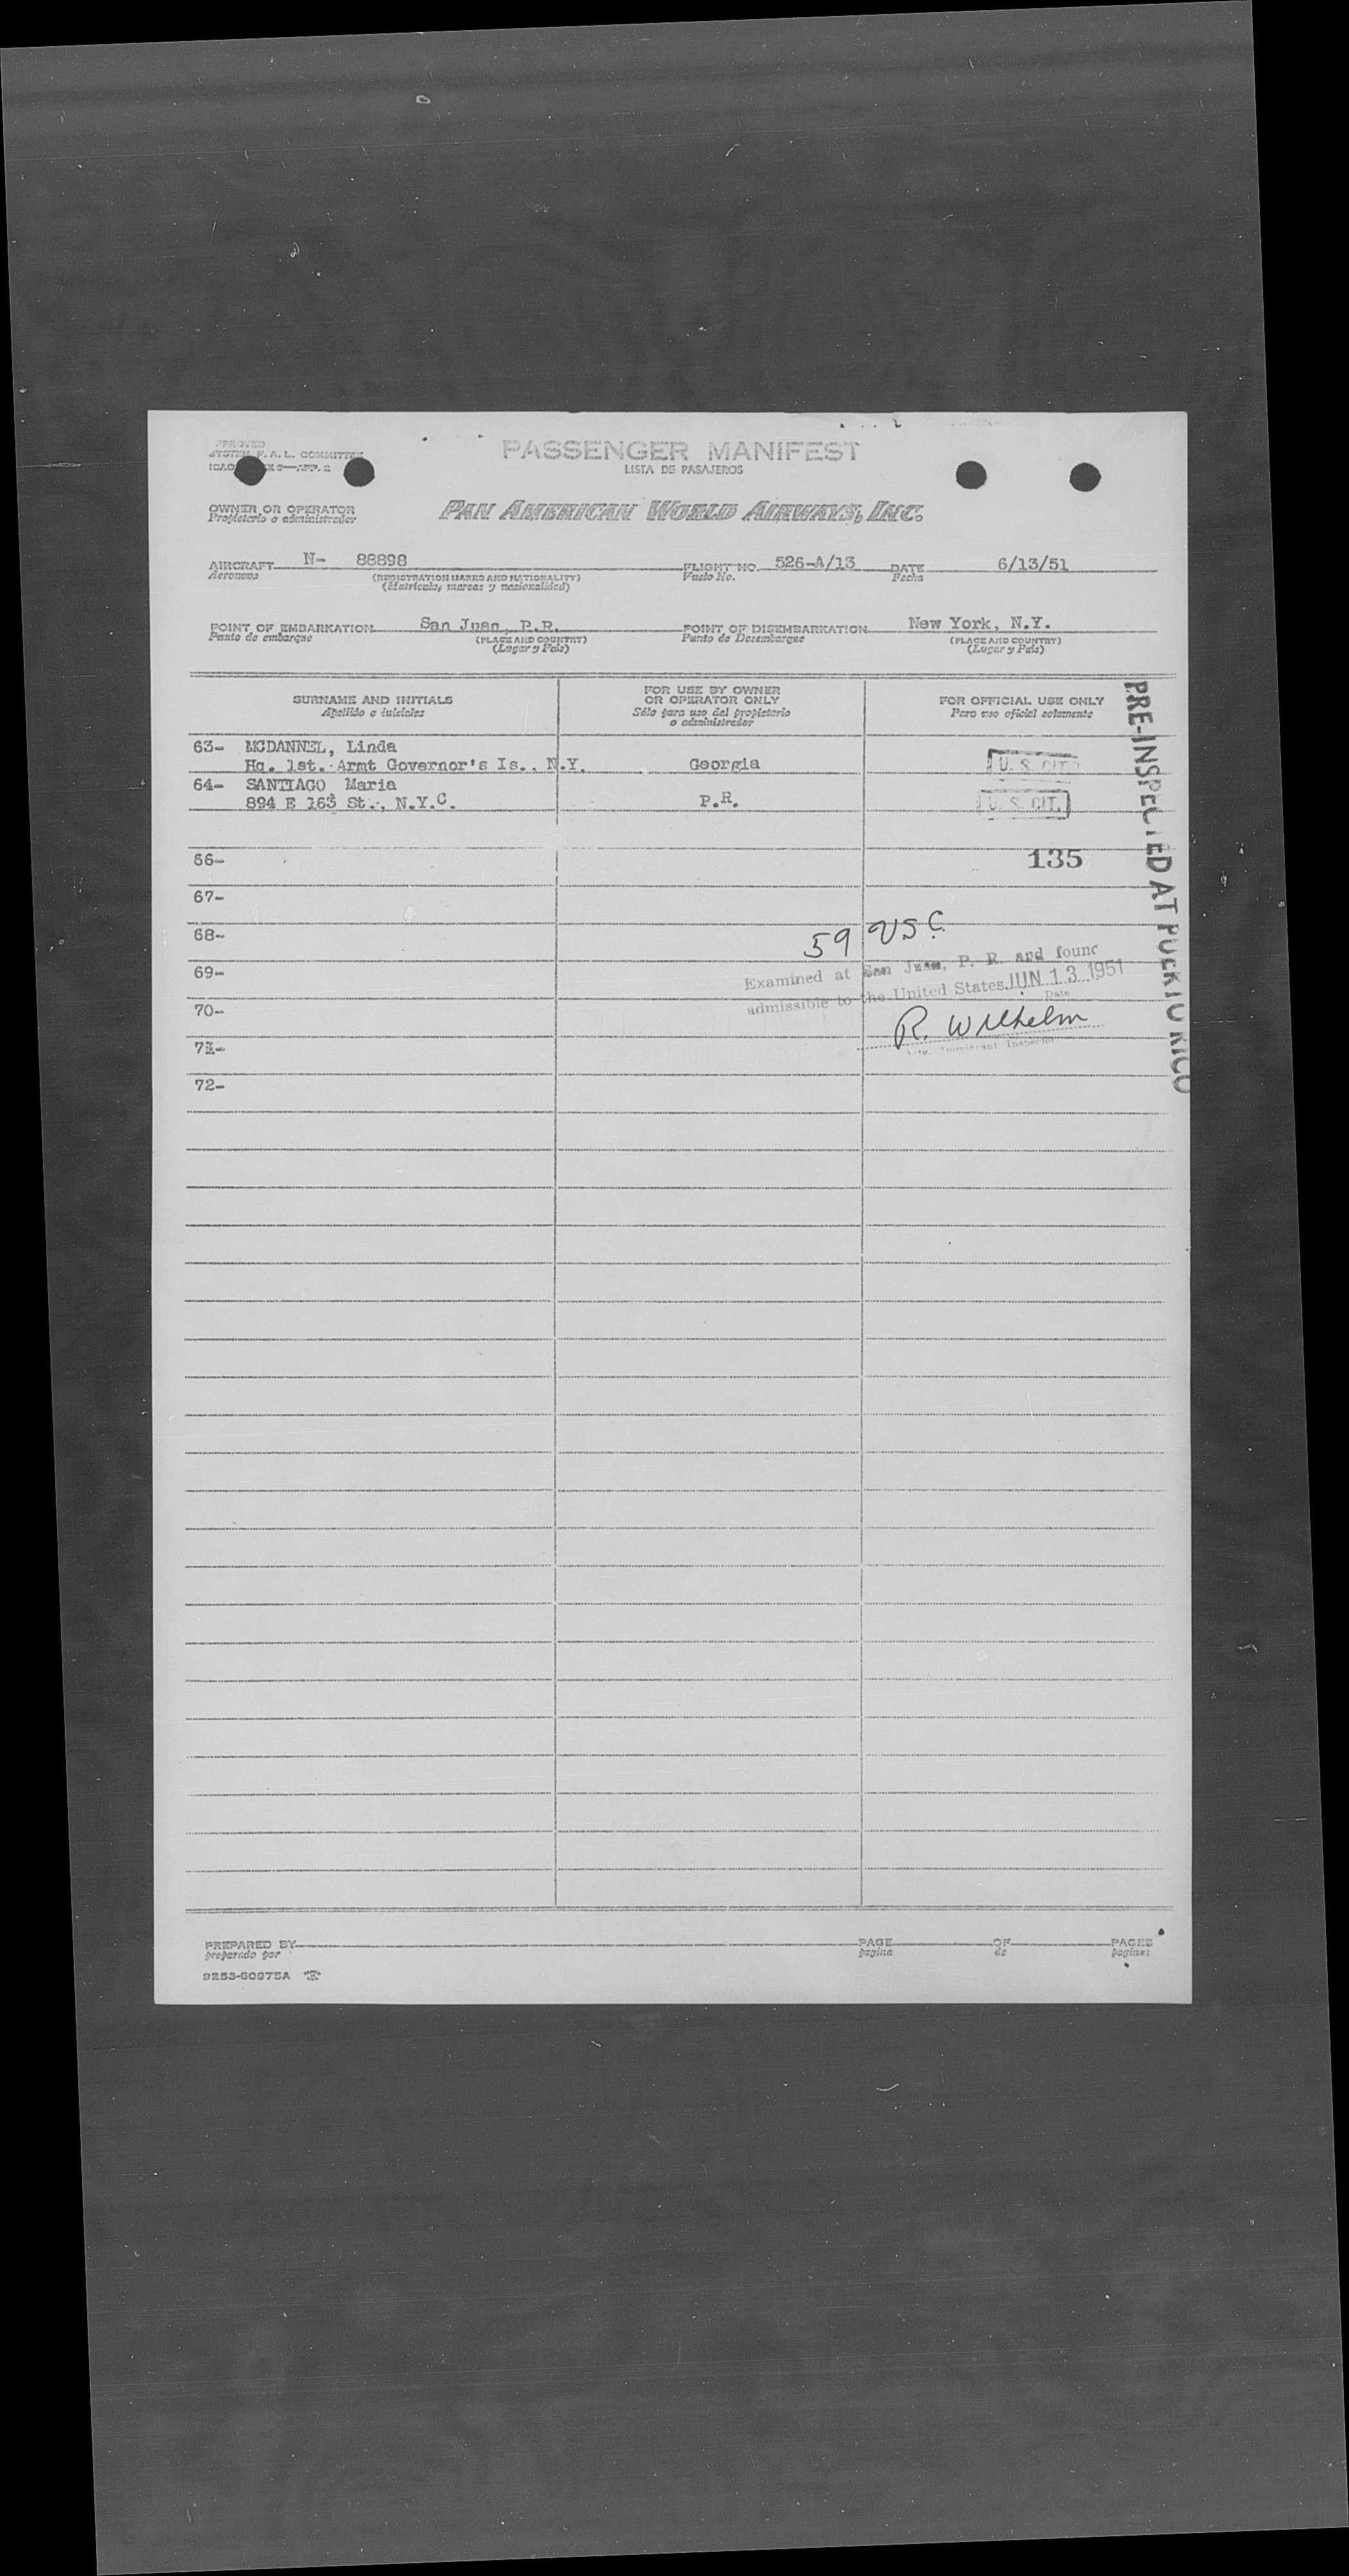 APPROVED
SYSTEM F. A. L. COMMITTEE
PASSENGER MANIFEST
LISTA DE PASAJEROS
OWNER OR OPERATOR
Propietario o administrador
PAN AMERICAN WORLD AIRWAYS, INC.
AIRCRAFT N- 88898 FLIGHT NO. 526-A/13 DATE 6/13/51
Aeronave (REGISTRATION MARKS AND NATIONALITY) Vuelo No. Fecha
(Matricula, marcas y nacionalidad)
POINT OF EMBARKATION San Juan, P.R. POINT OF DISEMBARKATION New York, N.Y.
Punto de embarque (PLACE AND COUNTRY) Punto de Desembarque (PLACE AND COUNTRY)
(Lugar y País) (Lugar y País)
SURNAME AND INITIALS
Apellido e iniciales
FOR USE BY OWNER
OR OPERATOR ONLY
Sólo para uso del propietario
o administrador
FOR OFFICIAL USE ONLY
Para uso oficial solamente
63- MCDANNEL, Linda
Hq. 1st. Armt Governor's Is., N.Y. Georgia U. S. CIT.
64- SANTIAGO Maria
894 E 163 St., N.Y.C. P.R. U. S. CIT.
66- 135
67-
68- 59 USC
69- Examined at San Juan, P. R. and found
70- admissible to the United States JUN 13 1951
Date
R. Wilhelm
71-
Immigrant Inspector
72-
PRE-INSPECTED AT PUERTO RICO
PREPARED BY PAGE OF PAGES
preparado por pagina de paginas
9253-60975A